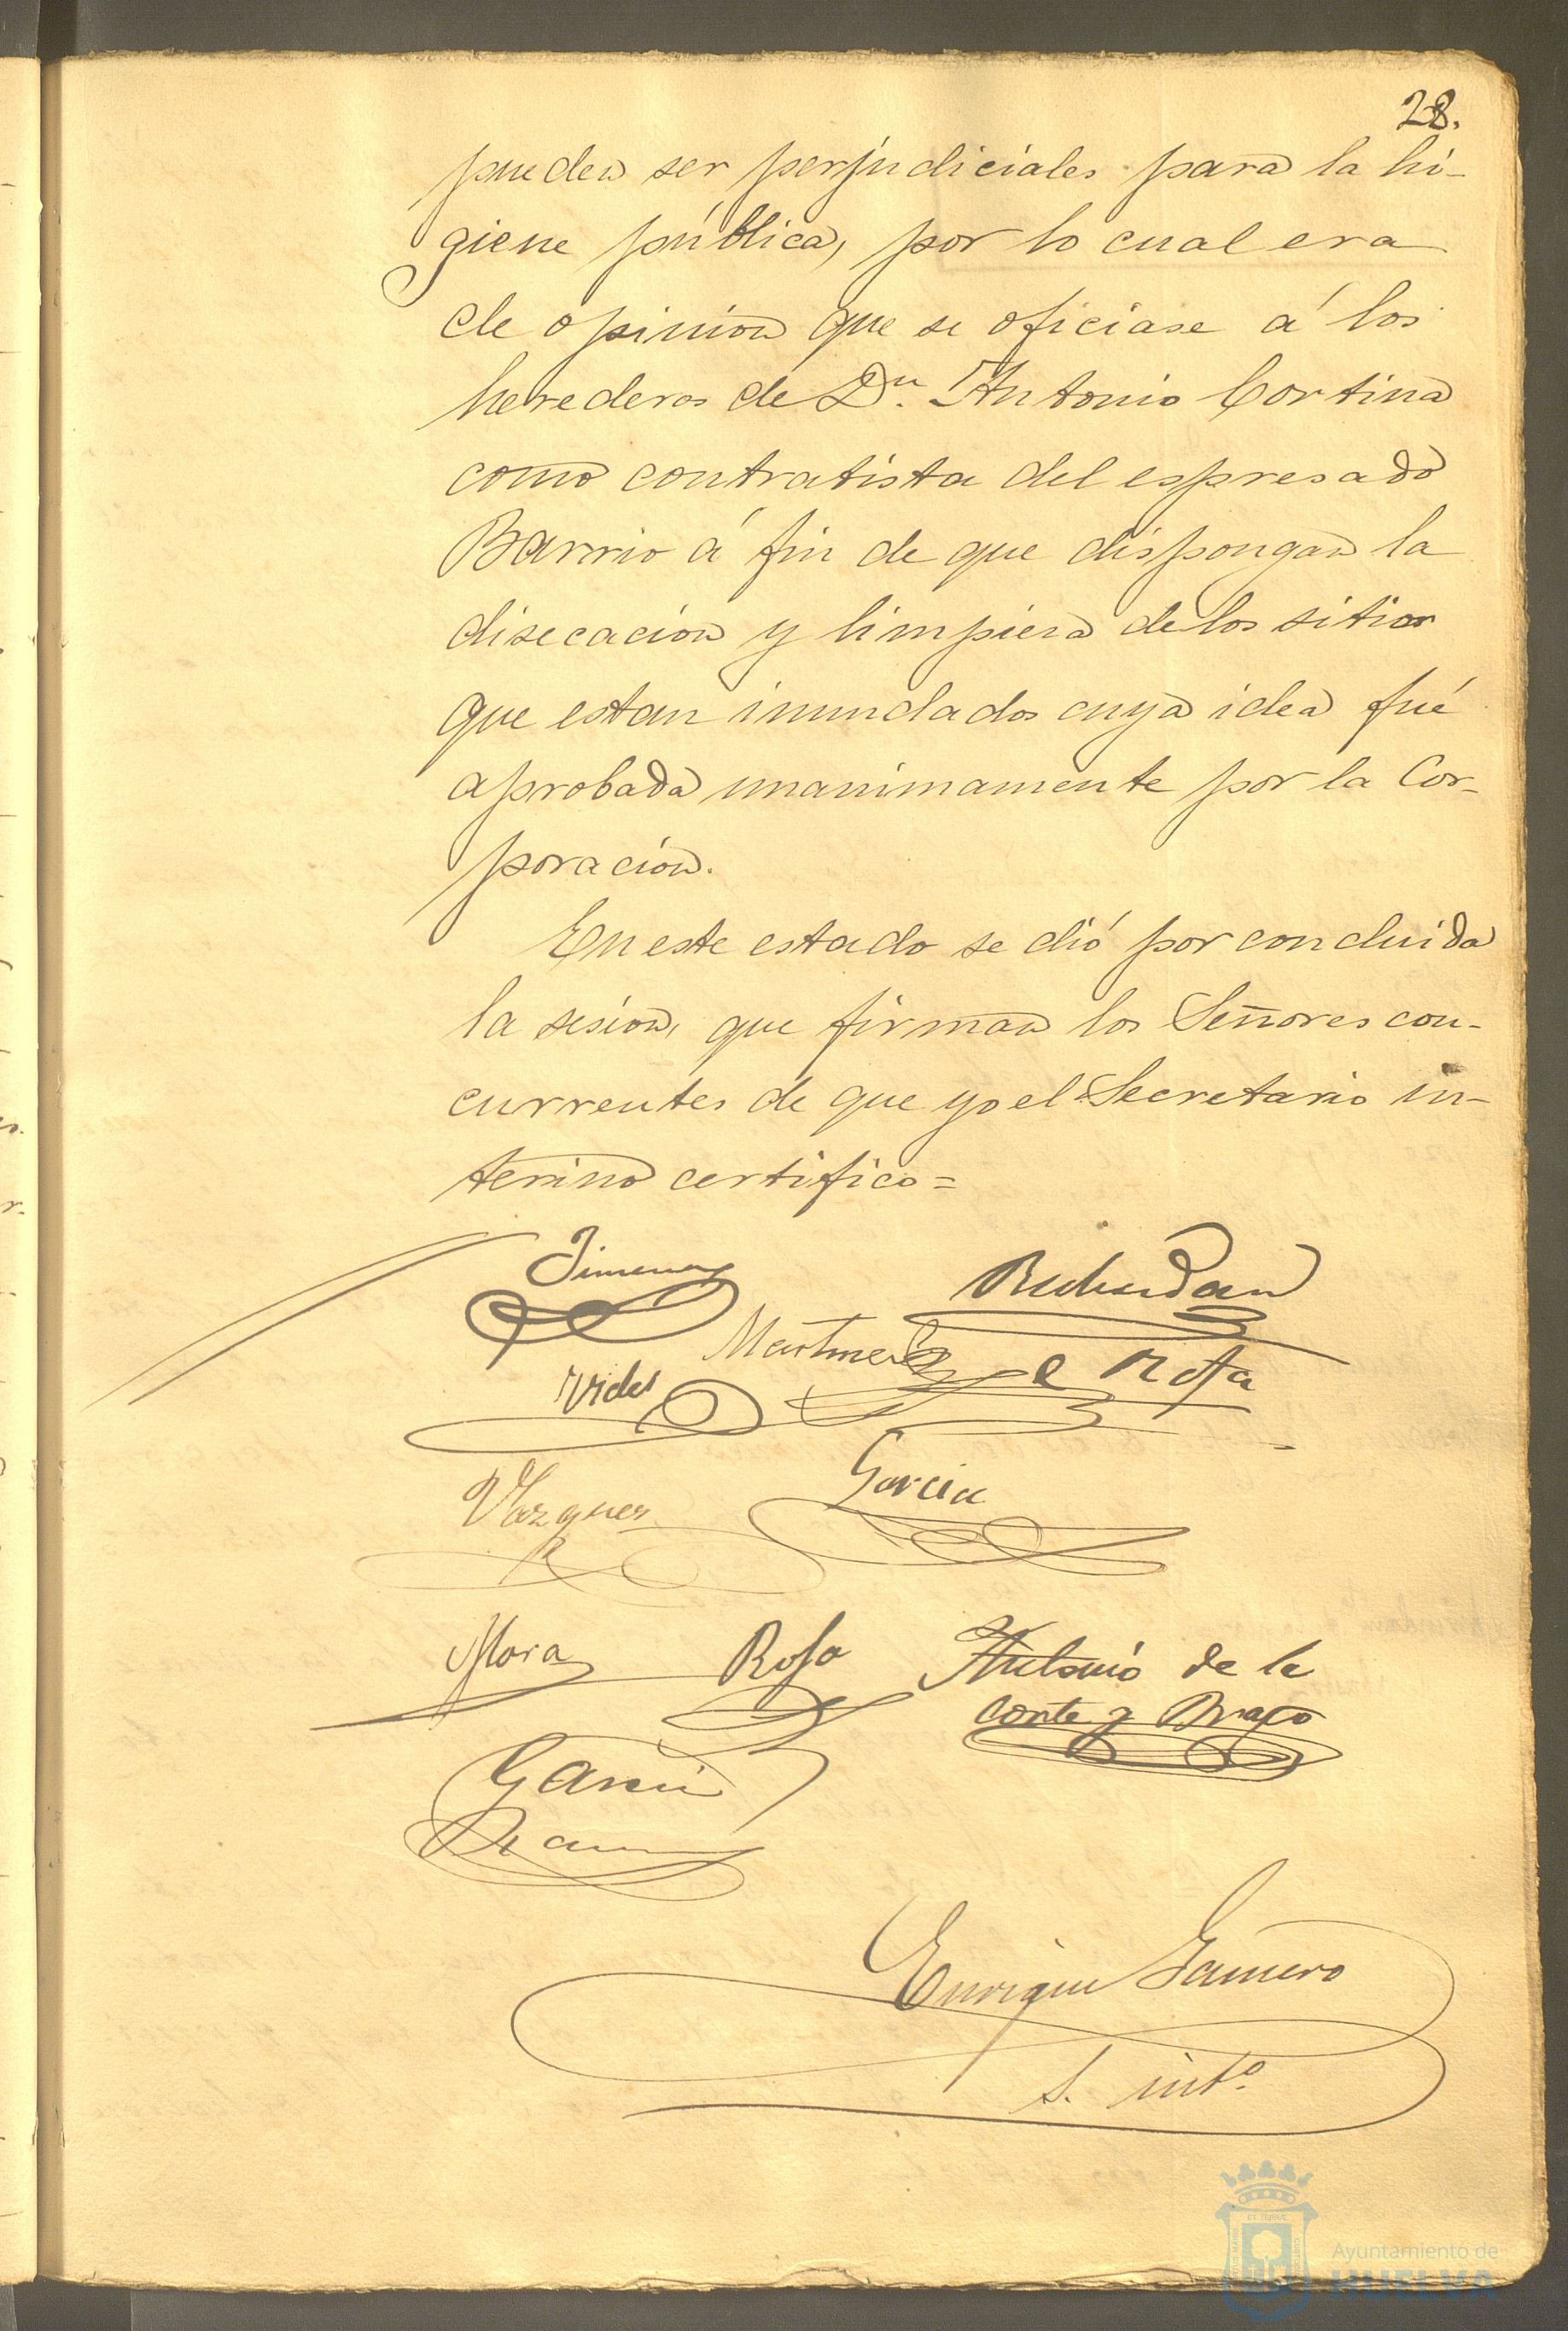 28.
pueden ser perjudiciales para la hi-
giene pública, por lo cual era
de opinion que se oficiase á los
herederos de Dn. Antonio Cortina
como contratista del espresado
Barrio á fin de que dispongan la
disecación y limpieza de los sitios
que estan inundados cuya idea fué
aprobada unanimamente por la Cor-
poración.
En este estado se dió por concluida
la sesión, que firman los Señores con-
currentes de que yo el Secretario in-
terino certifico=
Jimenez
Martinez
Vides
Vazquez
Garcia
Mora Rofa Antonio de la
Corte y Bravo
Garcia
Ramos
Enrique Gamero
S. intº.
Ayuntamiento de
HUELVA